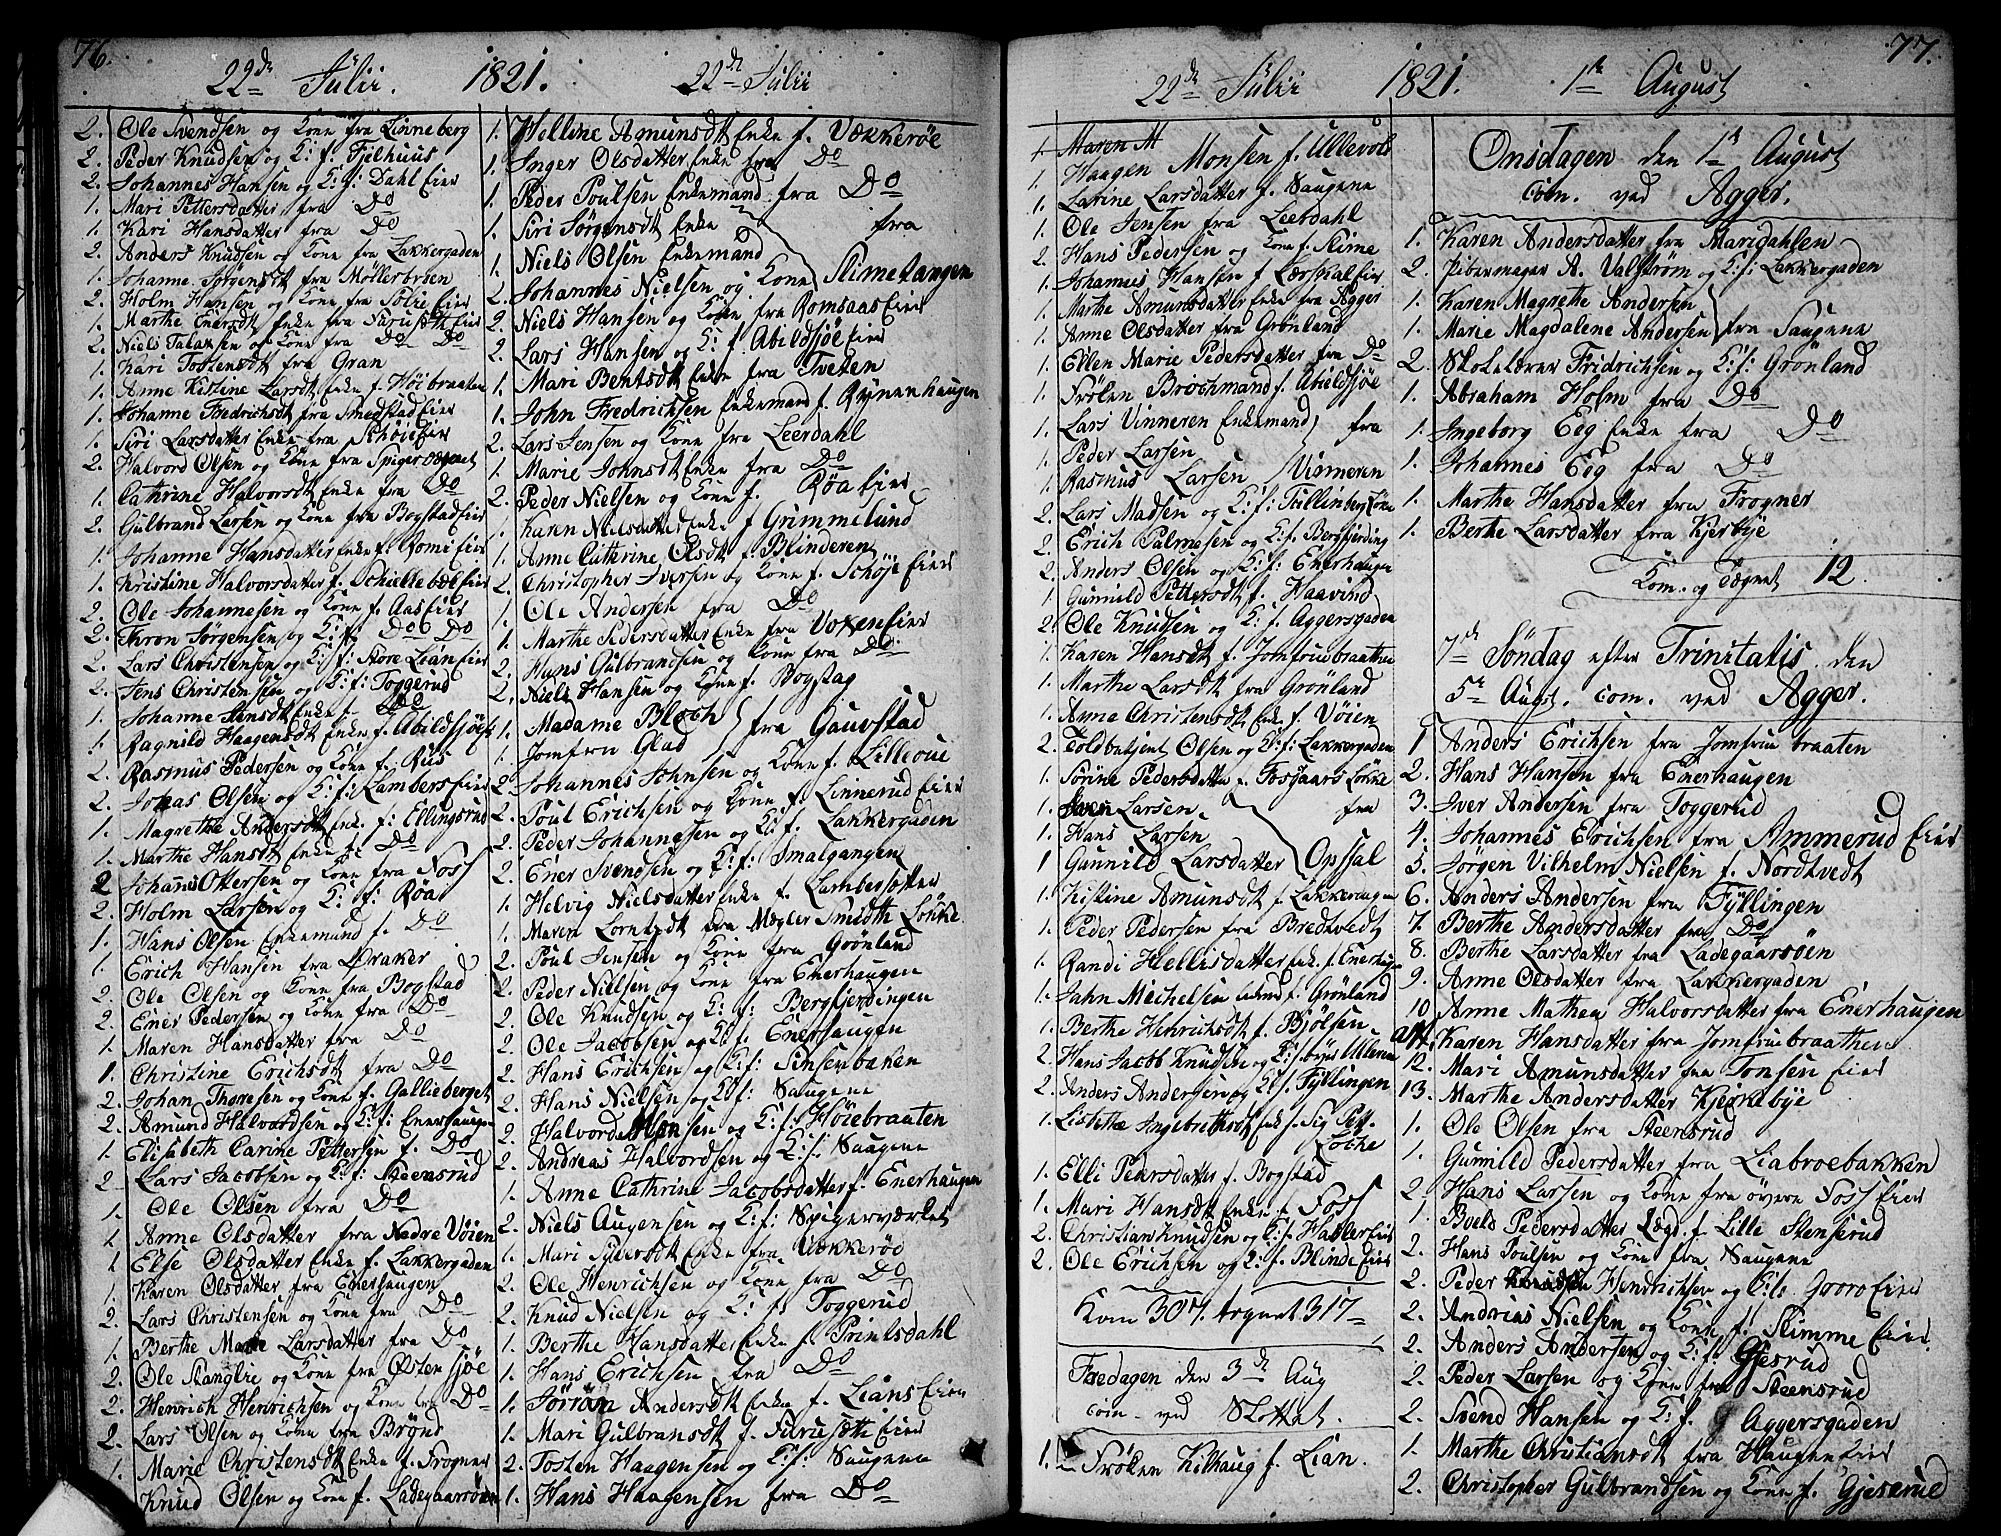 76.
22de Julii. 1821. 22de Julii
2. Ole Svendsen og Kone fra Linneberg
2. Peder Knudsen og K: f: Fjelhuus
2. Johannes Hansen og K: f: Dahl Eier
1. Mari Pettersdatter fra Do
1. Kari Hansdatter fra Do
2. Anders Knudsen og Kone fra Lakkergaden
1. Johanne Jørgensdt fra Møllerbyen
2. Holm Hansen og Kone fra Eier
1. Marthe Enersdt Enke fra Furusætt Eier
2. Niels og Kone fra Do Do
1. Kari Tostensdt fra Gran
1. Anne Kistine Larsdt Enke f. Høibraaten
1. Johanne Fredrichsdt fra Smedstad Eier
1. Siri Larsdatter Enke fra Schøie Eier
2. Halvord Olsen og Kone fra Spigerværket
1. Cathrine Halvorsdt Enke fra Do
2. Gulbrand Larsen og Kone fra Bogstad Eier
1. Johanne Hansdatter Enke f. Eier
1. Kristine Halvorsdatter f. Schiellebæk Eier
2. Ole Johannesen og Kone f. Aas Eier
2. Thron Jørgensen og K: f: Do Do
2. Lars Christensen og K: f: Store Lian Eier
2. Jens Christensen og K: f: Toggerud
1. Johanne Jensdt Enke f. Do
1. Ragnild Haagensdt Enke f. Abildsjøe
2. Rasmus Pedersen og Kone f. Rus
2. Johas Olsen og K: f: Lambers Eier
1. Magrethe Andersdt Enke f: Ellingsrud
1. Marthe Hansdt Enke f. Do
2. Johannes Ottersen og Kone fra Foss
2. Holm Larsen og K: f: Røa
1. Hans Olsen Enkemand f. Do
1. Erich Hansen fra Øraker
2. Ole Olsen og Kone fra Bogstad
2. Ener Pedersen og Kone fra Do
1. Maren Hansdatter fra Do
1. Christine Erichsdt fra Do
2. Johan Thoresen og Kone f. Gallieberget
2. Amund Halvordsen og K: f: Enerhaugen
1. Elisabeth Carine Pettersen f. Do
2. Lars Jacobsen og K: f: Steensrud
1. Ole Olsen fra Do
1. Anne Olsdatter fra Nedre Vøien
1. Else Olsdatter Enke f. Lakkergaden
1. Karen Olsdatter fra Enerhaugen
2. Lars Christensen og Kone fra Do
1. Berthe Larsdatter fra Do
2. Ole Stanglie og Kone fra Østensjøe
2. Henrich Henrichsen og Kone fra Do
2. Lars Olsen og Kone fra Brynd
1. Marie Christensdt Enke f. Frogner
Knud Olsen og Kone f. Ladegaarsøen
1. Helline Amunsdt Enke f. Vækkerøe
1. Inger Olsdatter Enke fra Do
1. Peder Poulsen Enkemand fra Do
1. Siri Jørgensdt Enke fra
1. Niels Olsen Enkemand
2. Johannes Nielsen og Kone Slimetangen
2. Niels Hansen og Kone fra Romsaas Eier
2. Lars Hansen og K: f. Abildsjøe Eier
1. Mari Bentsdt Enke fra Tveten
1. John Fredrichsen Enkemand f. Rynenhaugen
2. Lars Jensen og Kone fra Leerdahl
1. Marie Johnsdt Enke fra Do
2. Peder Nielsen og Kone f. Røa Eier
1. Karen Nielsdatter Enke f Grimmelund
1. Anne Catherine Olsdt f. Blinderen
2. Christopher Iversen og Kone f. Schøje Eier
1. Ole Andersen fra Do
1. Marthe Pedersdatter Enke fra Voxen Eier
2. Hans Gulbrandsen og Kone fra Do
2. Niels Hansen og Kone f. Bogstag
1. Madame Bloch fra Gaustad
1. Jomfru Glad
2. Johannes Johnsen og Kone f. Lilleoue
2. Poul Erichsen og Kone f. Linnerud Eier
2. Peder Johannesen og K: f. Lakkergaden
2. Ener Svendsen og K: f: Smalgangen
1. Helvig Nielsdatter Enke f. Lambersætter
1. Maren Lorntsdt fra Mægler Smidth Løkke
2. Poul Jensen og Kone fra Grønland
2. Peder Nielsen og Kone fra Enerhaugen
2. Ole Knudsen og K: f: Bergfjerdingen
2. Ole Jacobsen og K: f: Enerhaugen
2. Hans Erichsen og K: f: Sinsenbaken
2. Hans Nielsen og K: f: Saugene
2. Halvord Olsen og K: f: Høiebraaten
2. Andreas Halvordsen og K: f: Saugene
1. Anne Cathrine Jacobsdatter f. Enerhaugen
2. Niels Augensen og K: f: Spigerværket
1. Mari Enke fra Vækkerøe
2. Ole Henrichsen og Kone fra Do
2. Knud Nielsen og K: f. Toggerud
1. Berthe Hansdatter Enke f. Printsdahl
1. Hans Erichsen fra Do
1. Jørran Andersdt Enke f. Lians Eier
1. Mari Gulbransdt f. Furusætt Eier
2. Tosten Haagensen og K: f: Saugene
1. Hans Haagensen fra Do
77.
22de Julii 1821. 1te August
1. Maren M
1. Haagen Monsen f. Ullevol
1. Larine Larsdatter f. Saugene
1. Ole Jensen fra Leerdahl
2. Hans Pedersen og Kone f. Slime
1. Johannes Hansen f Eier
1. Marthe Amunsdatter Enke fra Agger
1. Anne Olsdatter fra Grønland
1. Ellen Marie Pedersdatter fra Do
1. Frøken Brochmand f. Abildsjøe
1. Lars Vinneren Enkemand fra
1. Peder Larsen
1. Rasmus Larsen Vinneren
2. Lars Madsen og K: f: Tillinberg Løkke
2. Erich Palmesen og K: f: Bergfjerding
2. Anders Olsen og K: f: Enerhaugen
1. Gunnild Pettersdt f. Haavind
2. Ole Knudsen og K: f. Aggersgaden
1. Karen Hansdt f. Jomfruebraathen
1. Marthe Larsdt fra Grønland
1. Anne Christensdt Enke f. Vøien
2. Toldbetjent Olsen og K: f: Lakkergaden
1. Sørine Pedersdatter f. Løkke
1. Iver Larsen fra
1. Hans Larsen
1 Gunnild Larsdatter Opsal
1. Kistine Amunsdt f. Lakkergaden
1. Peder Pedersen fra Bredtvedt
1. Randi Hellisdatter Enke f. Enerhaugen
1. Jahn Michelsen f. Grønland
1. Berthe Henrichsdt f. Bjølsen
2. Hans Jacob Knudsen og K: f.
2. Anders Andersen og K: f. Fyllingen
1. Lisbethe Ingebrethsdt Enke f. Sig Pett.
Løche
1. Elli Peersdatter f. Bogstad
1. Mari Hansdt Enke f. Foss
2. Christian Knudsen og K: f. Hasler Eier
2. Ole Erichsen og K: f. Blinde Eier
Kom 307. tegnet 317
Fredagen den 3de Aug
com. ved Slottet.
1. Frøken Kilhaug f. Lian.
Onsdagen den 1te August
com. ved Agger.
1. Karen Andersdatter fra Maridahlen
2. Pibemager A. Valstrøm og K: f: Lakkergaden
1. Karen Magrethe Andersen
1. Marie Magdalene Andersen fra Saugene
2. Skolelærer Fridrichsen og K: f: Grønland
1. Abraham Holm fra Do
1. Ingeborg Eeg Enke fra Do
1. Johannes Eeg fra Do
1. Marthe Hansdatter fra Frogner
1. Berthe Larsdatter fra Kjerbye
Kom. og Tegnet 12.
7de Søndag efter Trinitatis den
5te Augst. com. ved Agger.
1 Anders Erichsen fra Jomfruebraaten
2. Hans Hansen fra Enerhaugen
3. Iver Andersen fra Toggerud
4. Johannes Erichsen fra Ammerud Eier
5. Jørgen Vilhelm Nielsen f. Nordtvedt
6. Anders Andersen fra Fyllingen
7. Berthe Andersdatter fra Do
8. Berthe Larsdatter fra Ladegaarsøen
9. Anne Olsdatter fra Lakkergaden
10. Anne Mathea Halvorsdatter fra Enerhaugen
11. Karen Hansdatter fra Jomfruebraathen
12. Mari Amunsdatter fra Tonsen Eier
13. Marthe Andersdatter Kjerkebye
1. Ole Olsen fra Steensrud
1. Gunnild Pedersdatter fra Liabroebakken
2. Hans Larsen og Kone fra øvere Foss Eier
1. Boels Pedersdatter Lægd f. Lille Stenserud
2. Hans Poulsen og Kone fra Saugene
2. Peder Hendrichsen og K: f. Grorø Eier
2. Andreas Nielsen og Kone f. Slimme Eier
2. Anders Andersen og K: f. Gjesrud
2. Peder Larsen og Kone fra Steensrud
2. Svend Hansen og K: f. Aggersgaden
1. Marthe Christiansdt fra Haugen Eier
2. Christopher Gulbrandsen og Kone f. Gjesrud